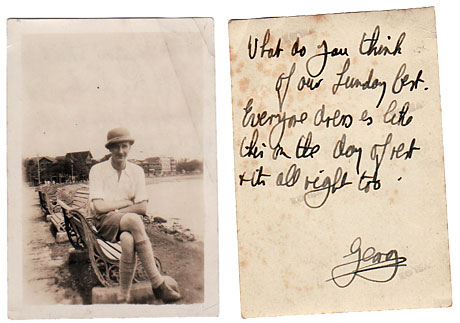 What do you think
of our Sunday best.
Everyone dresses like
this on the day of rest
& its all right too.
Georg